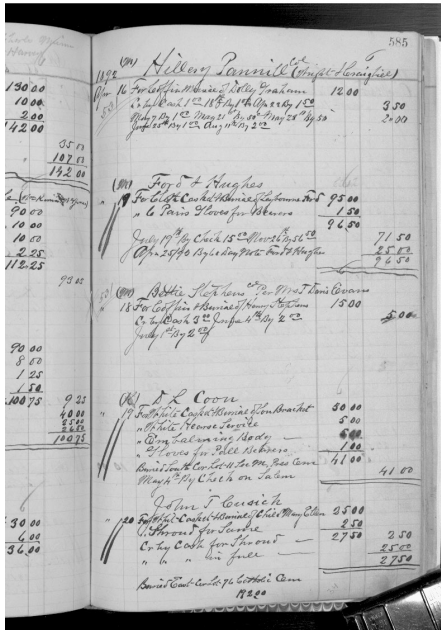 585
1892 Hillery Pannill Col
Apr 16 For Coffin & Burial of Dolly Graham 12 00
Cr by Cash 1 00 18th By 1 00 Apr 22 By 1 50 3 50
May 7 By 1 00 May 21st By 50 May 28th By 50 2 00
June 25th By 1 00 Aug 11th By 2 00
Ford & Hughes
" 19 For Cloth Casket & Burial of Ford 95 00
" 6 Pairs Gloves for Bearers 1 50
96 50
July 19th By Check 15 00 Nov 26th By 56 50 71 50
Apr 25/93 By 60 day Note Ford & Hughes 25 00
96 50
Bettie Stephens Col Per Mrs T Davis Evans
" 18 For Coffin & Burial of Henry Stephens 15 00
Cr by Cash 3 00 June 4th By 2 00 5 00
July 1st By 2 00
D L Coon
" 19 For White Casket & Burial of Son 50 00
" White Hearse Service 5 00
" Embalming Body
" Gloves for Pall Bearers 1 00
41 00
May 4th By Check on Salem 41 00
John T Cusick
" 20 For Casket & Burial of Child Mary Ellen 25 00
" Shroud for Same 2 50
Cr by Cash for Shroud 27 50 2 50
" " " in full 25 00
27 50
Buried East Cor Lot 76 Catholic Cem
130 00
10 00
2 00
142 00
35 00
107 00
142 00
90 00
10 00
10 00
2 25
112 25
90 00
8 00
1 25
1 50
100 75 9 25
40 00
25 00
26 50
100 75
30 00
6 00
36 00